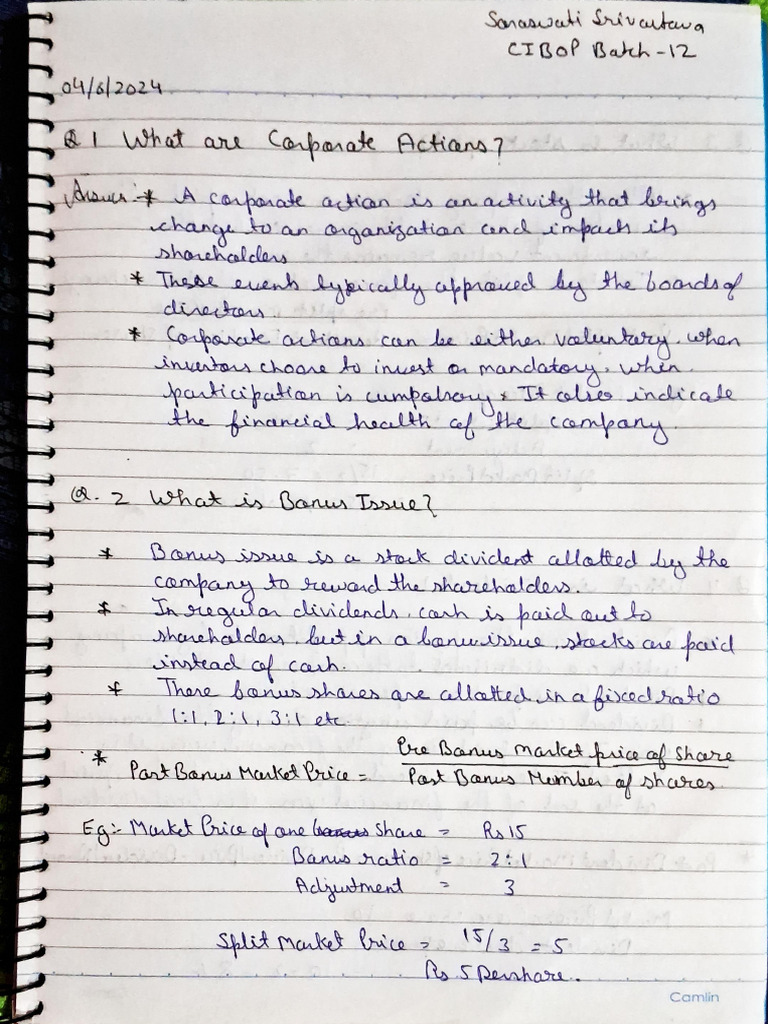 Saraswati Srivastava
CIBOP Batch -12
04/6/2024
Q 1 What are Corporate Actions?
Answer :- * A corporate action is an activity that brings
change to an organization and impacts its
shareholders
* These events typically approved by the boards of
directors
* Corporate actions can be either voluntary, when
investors choose to invest or mandatory, when
participation is cumpolsory * It also indicate
the financial health of the company.
Q. 2 What is Bonus Issue?
* Bonus issue is a stock divident allotted by the
company to reward the shareholders.
* In regular dividends, cash is paid out to
shareholders, but in a bonus issue, stocks are paid
instead of cash.
* These bonus shares are allotted in a fixed ratio
1:1, 2:1, 3:1 etc.
* Post Bonus Market Price = Pre Bonus market price of Share
Post Bonus Number of shares
Eg:- Market Price of one Share = Rs 15
Bonus ratio = 2:1
Adjustment = 3
Split Market Price = 15/3 = 5
Rs 5 Pershare.
Camlin